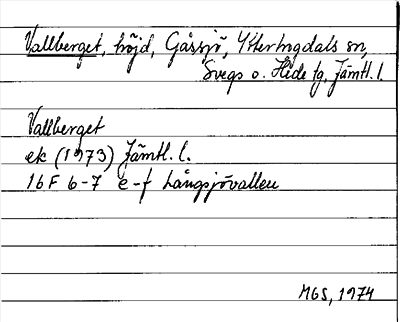 Vallberget, höjd, Gåssjö, Ytterhogdals sn,
Svegs o. Hede tg, Jämtl. l.
Vallberget
ek (1973) Jämtl. l.
16 F 6-7 e-f Långsjövallen
MGS, 1974